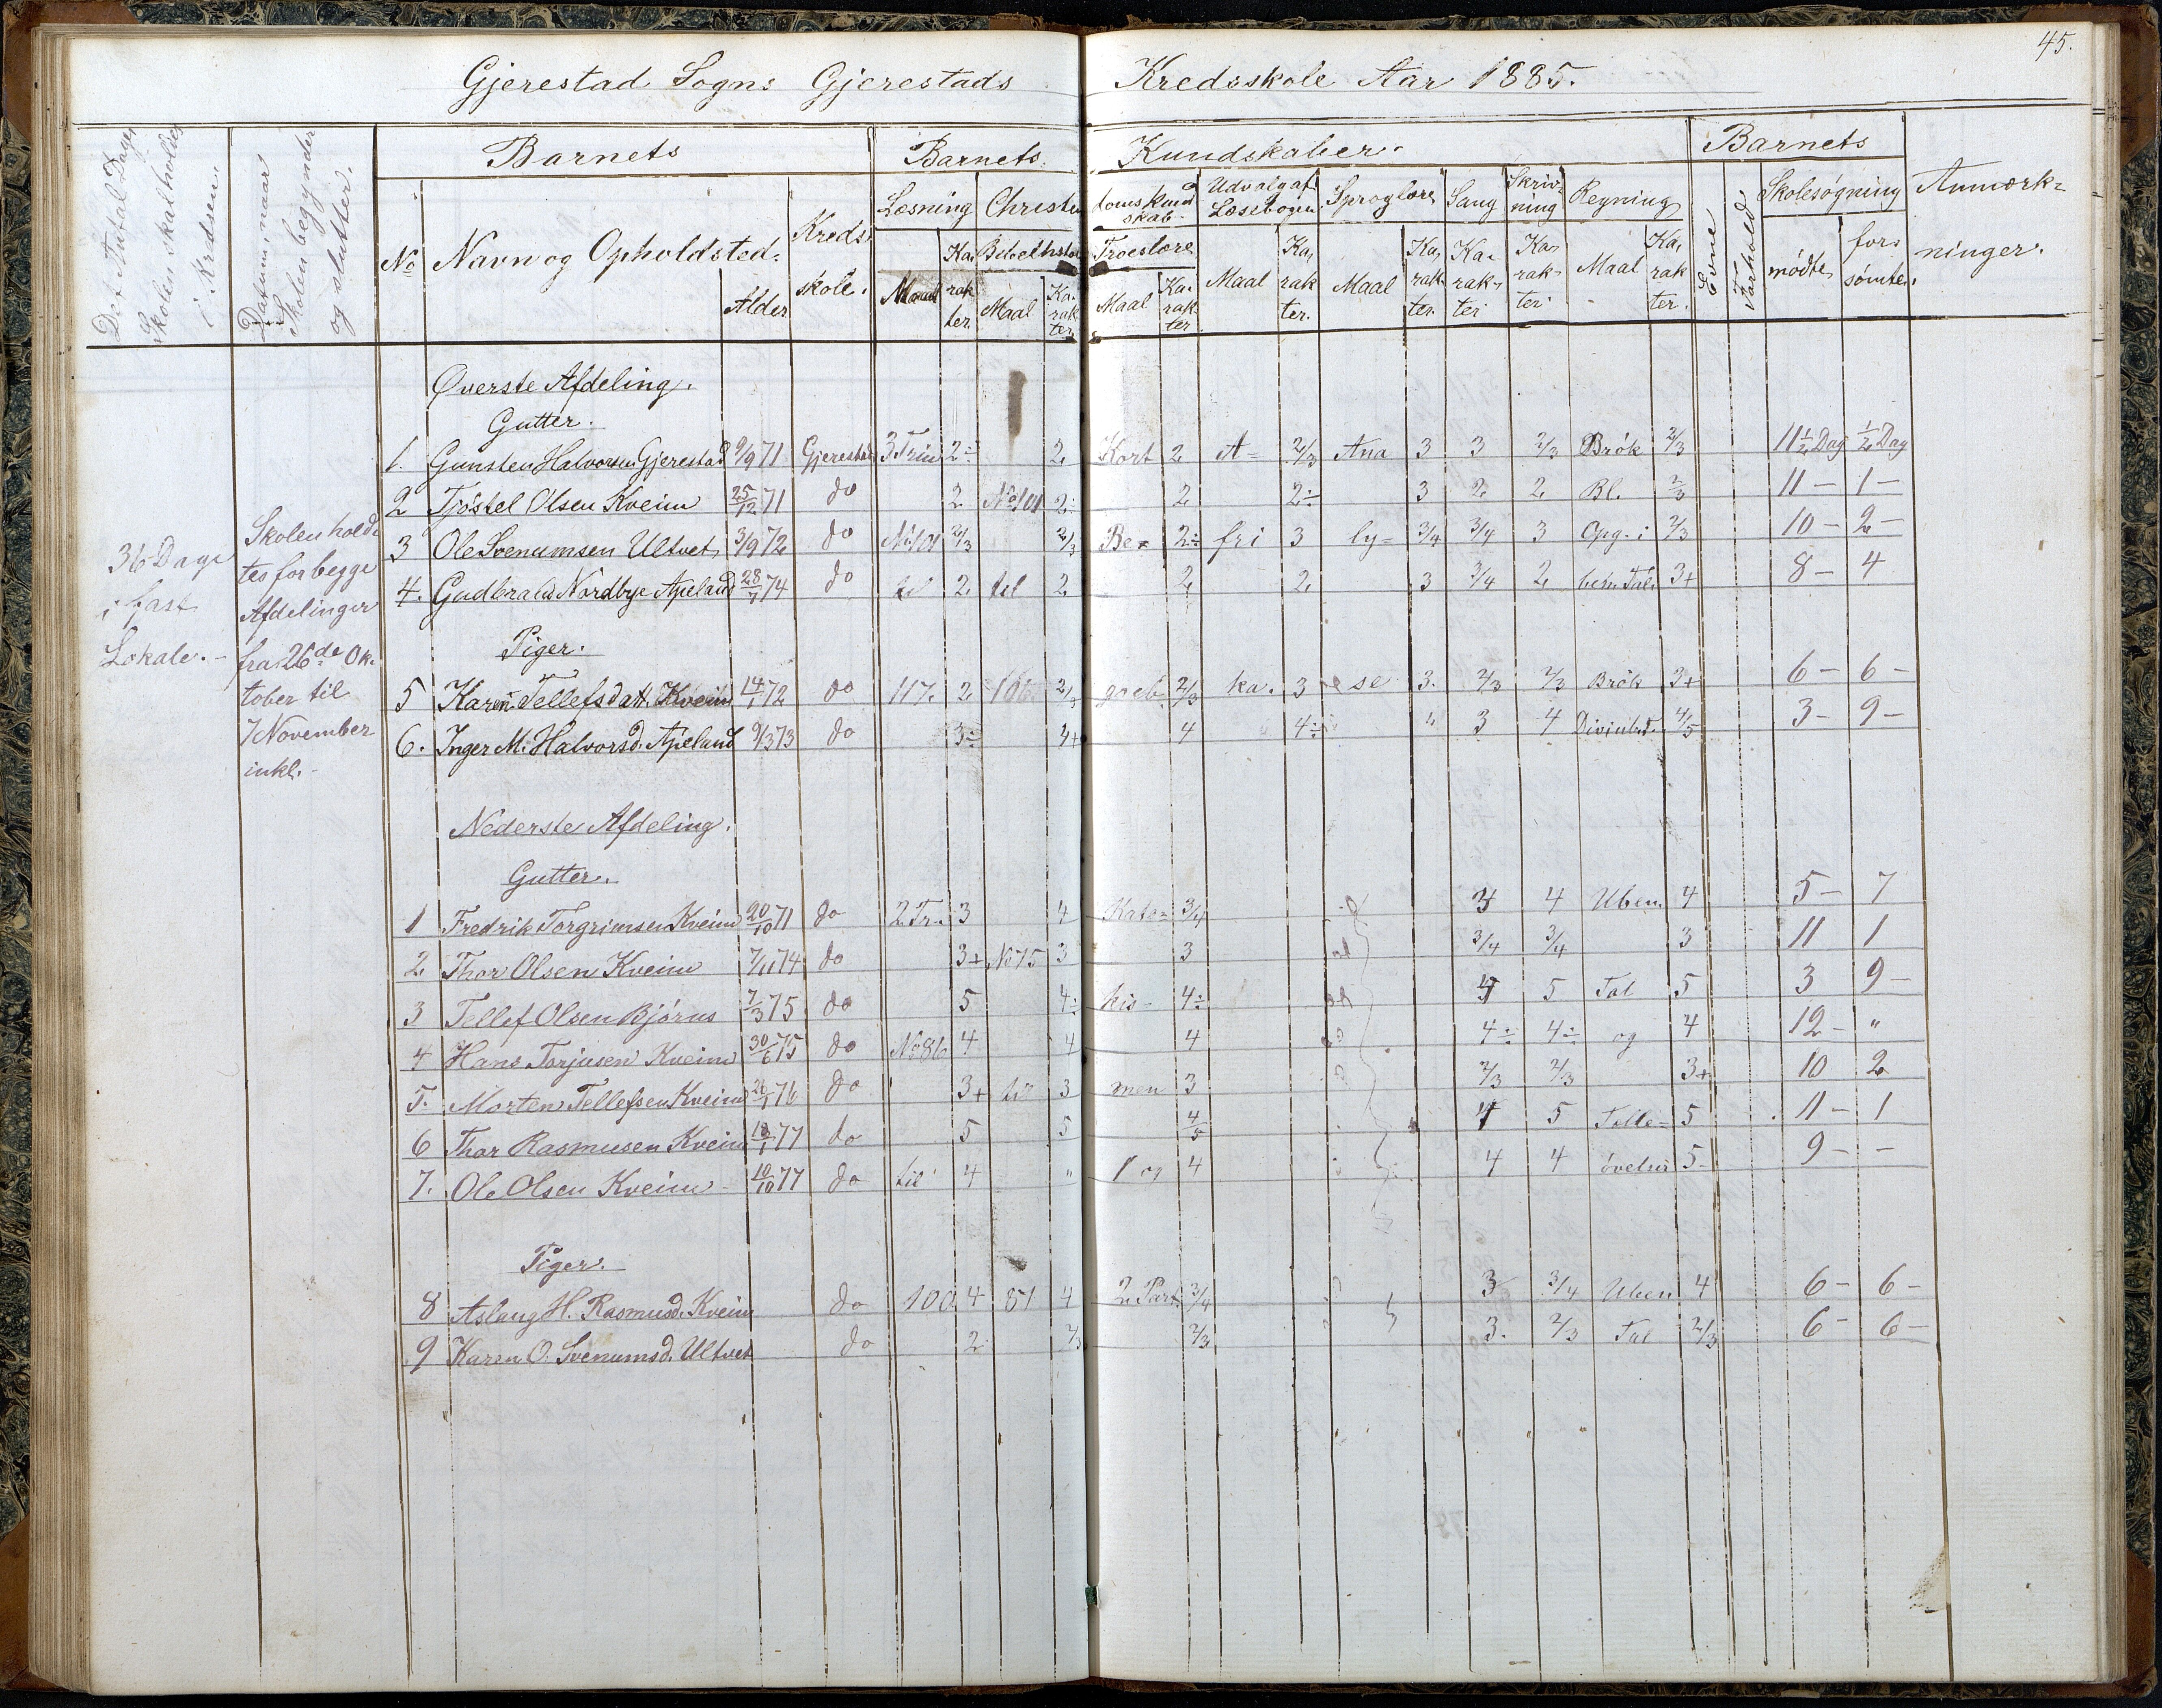 45.
Gjerestad Sogns Gjerestads Kredsskole Aar 1885.
Det Antal Dage Skolen skal holdes i Kredsen.
Datum, naar Skolen begynder og slutter.
Barnets
Barnets Kundskaber.
Barnets
Anmærkninger.
No Navn og Opholdsted. Alder Kredsskole.
Læsning Christendomskundskab. Udvalg af Læsebogen Sproglære Sang Skrivning Regning Evne Forhold Skolesøgning
Maal Karakter Bibelhistorie Troeslære Maal Karakter. Maal Karakter. Karakter Karakter Maal Karakter. mødte forsømte.
Maal Karakter Maal Karakter
36 Dage
i fast
Lokale.-
Skolen holdtes for begge
Afdelinger
fra 26de Oktober til
7 November
inkl.-
Øverste Afdeling.
Gutter.
1. Gunsten Halvorsen Gjerestad 9/9 71 Gjerestad 3 Trin 2÷ 2 Kort 2 A= 2/3 Ana 3 3 2/3 Brök 2/3 11½ Dag ½ Dag
2 Tjöstel Olsen Kveim 25/12 71 do 2 No 101 2÷ 2 2÷ 3 2 2 Bl. 2/3 11 - 1 -
3 Ole Svenumsen Ultvet 3/9 72 do No 101 2/3 2/3 Be= 2÷ fri 3 ly= 3/4 3/4 3 Opg. i 2/3 10 - 2 -
4. Gudbrand Nordbye Apeland 28/1 74 do til 2 til 2 2 2 3 3/4 2 ben. Tal 3+ 8 - 4
Piger.
5 Karen Tellefsdatt. Kveim 14/1 72 do 117. 2 106 2/3 2/3 ka. 3 se 3. 2/3 2/3 Brök 3+ 6 - 6 -
6. Inger M. Halvorsd. Apeland 9/3 73 do 3÷ 4 4÷ " 3 4 4/5 3 - 9 -
Nederste Afdeling.
Gutter.
1 Fredrik Torgrimsen Kveim 20/10 71 do 2 Tr. 3 4 Kate= 3/4 4 Uben. 4 5 - 7
2 Thor Olsen Kveim 7/11 74 do 3+ No 75 3 3 3/4 3/4 3 11 1
3 Tellef Olsen Bjórus 7/3 75 do 5 4÷ kis- 4÷ 5 Tal 5 3 9 -
4 Hans Torjusen Kveim 30/6 75 do No 86 4 4 4 4÷ 4÷ og 4 12 - "
5. Morten Tellefsen Kveim 26/1 76 do 3+ til 3 men 3 2/3 2/3 3+ 10 2
6 Thor Rasmusen Kveim 18/1 77 do 5 5 4/5 4 5 Talle= 5 11 - 1
7. Ole Olsen Kveim 10/10 77 do til 4 " 1 og 4 4 4 övelser 5- 9 - -
Piger.
8 Aslaug H. Rasmusd. Kveim do 100 4 81 4 2. Part 3/4 3 3/4 Uben 4 6 - 6 -
9 Karen O. Svenumsd. Ultvet do 2 2/3 2/3 3. 2/3 Tal 2/3 6 - 6 -